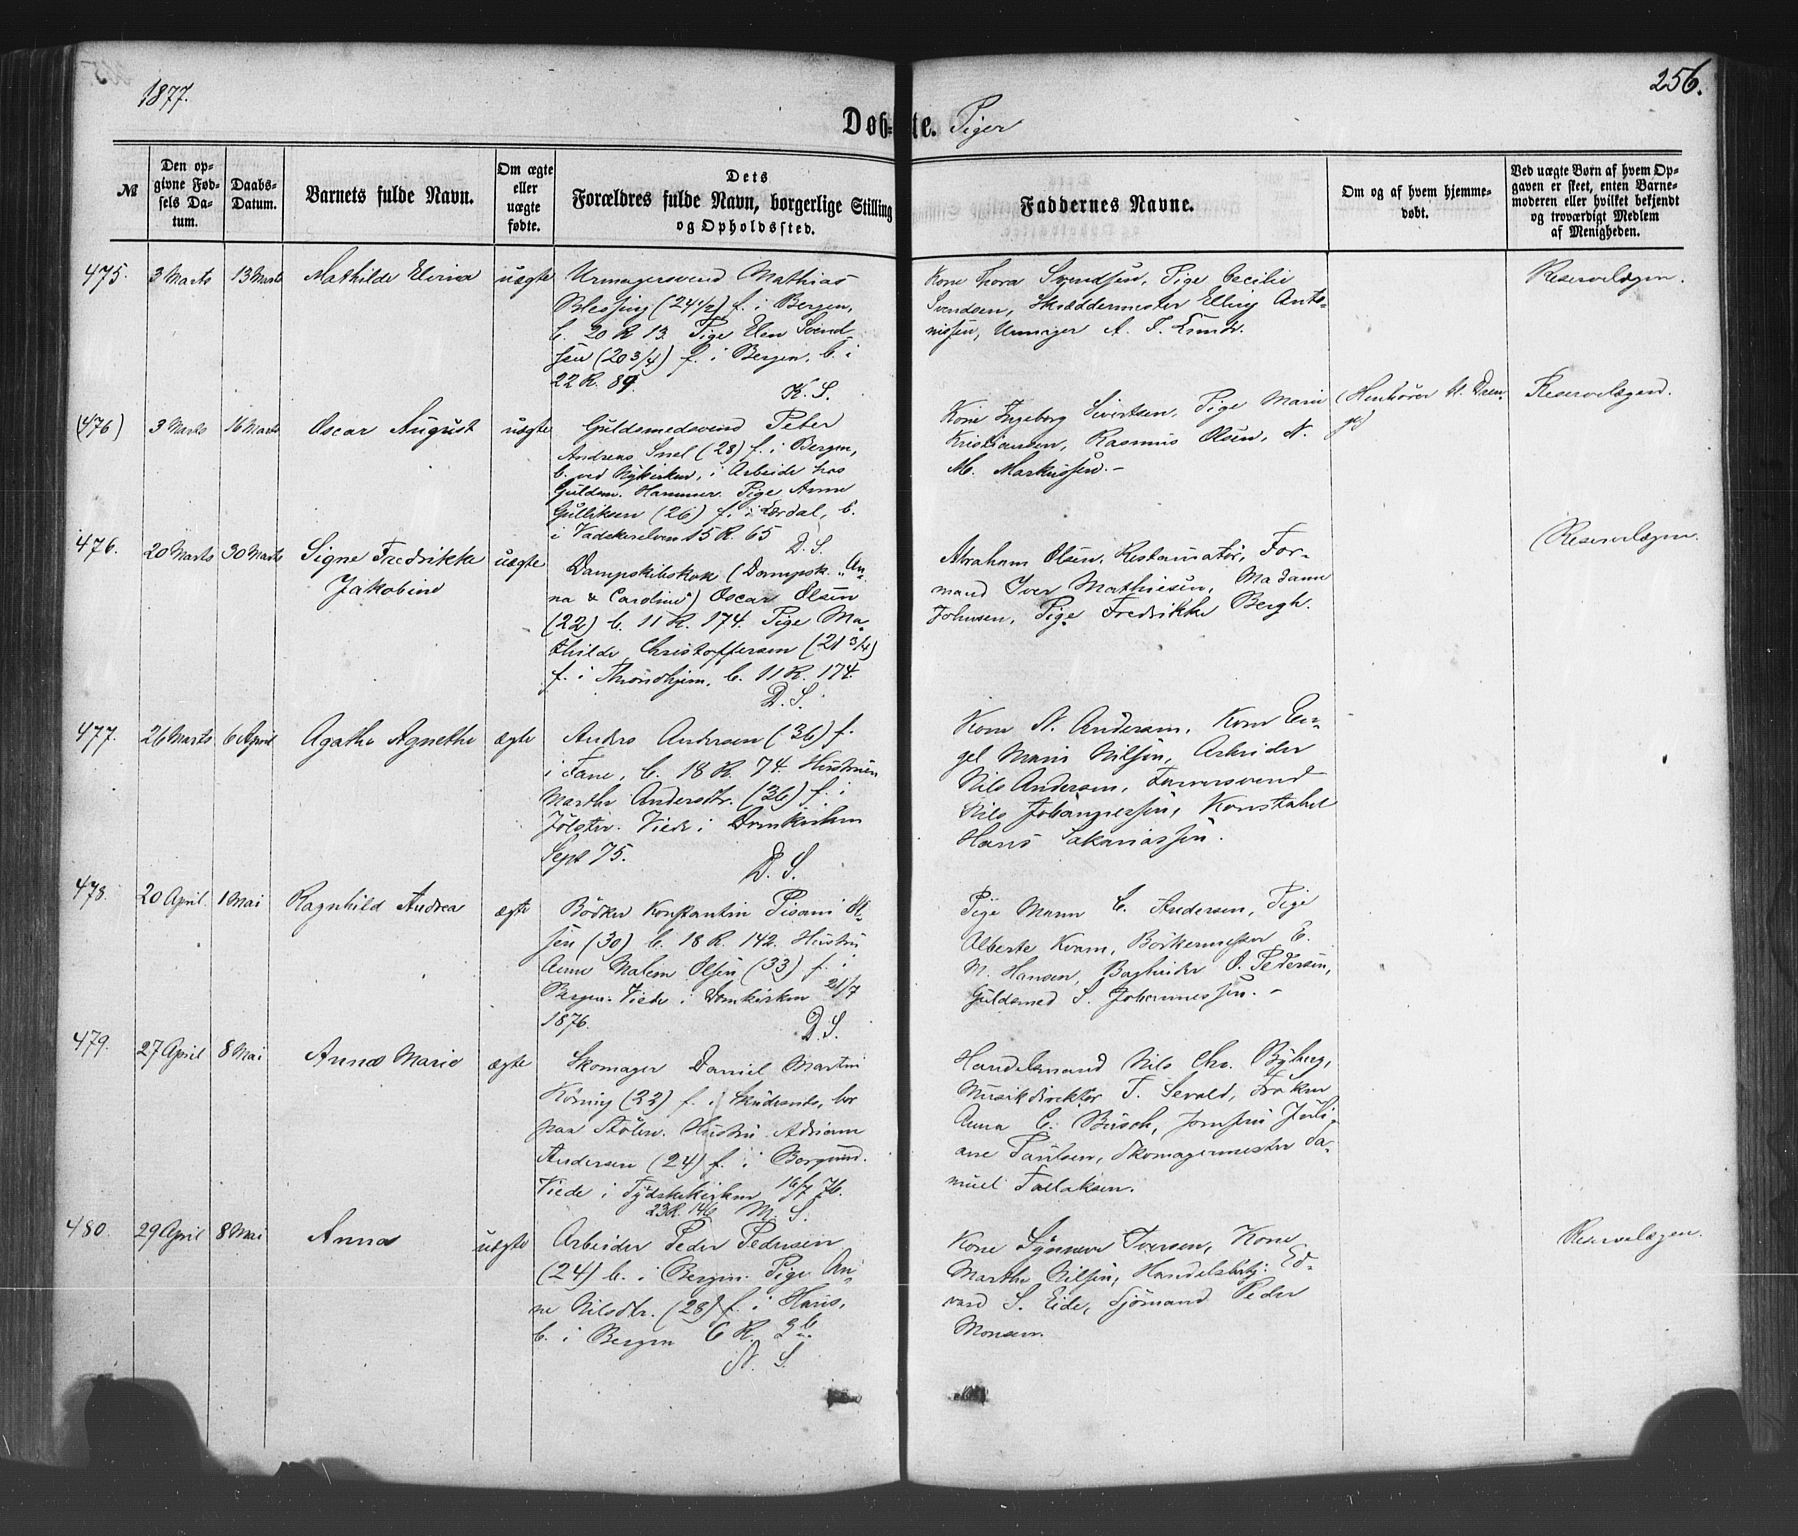 1877.
256.
Døbte. Piger
№
Den opgivne Fødsels Datum.
Daabs-Datum.
Barnets fulde Navn.
Om ægte eller uægte fødte.
Dets Forældres fulde Navn, borgerlige Stilling og Opholdssted.
Faddernes Navne.
Om og af hvem hjemmedøbt.
Ved uægte Børn af hvem Opgaven er skeet, enten Barnemoderen eller hvilket bekjendt og troværdigt Medlem af Menigheden.
475. 3 Marts 13 Marts Mathilde Elvina uægte
Urmagersvend Mathias
Blessing (24 1/2) f. i Bergen,
b. 20 R 13. Pige Elen Svend
sen (20 3/4) f. i Bergen, b. i
22 R. 89.
K. S.
Kone Thora Svendsen, Pige Cecilie
Svendsen, Skræddermester Ellerg Anto-
nissen, Urmager A. S.
Reservelægen.
(476) 3 Marts 16 Marts Oscar August uægte
Guldsmedsvend Peter
Andreas Snel (28) f. i Bergen,
b. ved Nykirken, i Arbeide hos
Guldsm. Hammer. Pige Anna
Gulliksen (26) f. i Lærdal, b.
i Vadskerelven 15 R. 65
D. S.
Kone Ingeborg Sivertsen, Pige Marie
Kristiansen, Rasmus Olsen, N.
M. Markussen.-
(Henhører t. Drenge)
Reservelægen.
476. 20 Marts 30 Marts Signe Fredrikke
Jakobine
uægte
Dampskibskok (Dampsk. "An-
na & Caroline") Oscar Olsen
(22) b. 11 R. 174. Pige Ma-
thilde Christoffersen (21 3/4)
f. i Throndhjem, b. 11 R. 174.
D. S.
Abraham Olsen, Restauratør, For-
mand Iver Mathiesen, Madame
Johnsen, Pige Fredrikke Bergh.
Reservelægen.
477. 26 Marts 6 April Agathe Agnethe ægte
Anders Andersen (36) f.
i Fane, b. 18 R. 74. Hustruen
Marthe Andersdtr. (36) f. i
Jølster. Viede i Domkirken
Sept 75.
D. S.
Kone N. Andersen, Kone En-
gel Marie Nilsen, Arbeider
Nils Andersen, Farversvend
Nils Johannessen, Konstabel
Hans Sakariassen.
478. 20 April 1 Mai Ragnhild Andrea ægte
Bødker Konstantin Pisani Ol-
sen (30) b. 18 R. 142. Hustru
Anne Malene Olsen (33) f. i
Bergen. Viede i Domkirken 21/7
1876.
D. S.
Pige Maren C. Andersen, Pige
Alberte Kvam, Bødkermester E.
M. Hansen, Bagbeider O. Pedersen,
Guldsmed S. Johannessen.-
479. 27 April 8 Mai Anna Marie ægte
Skomager Daniel Martin
Køring (22) f. i Skudesnes, bor
paa Stølen. Hustru Adriane
Andersen (24) f. i Borgund.
Viede i Tydskekirken 16/7 76.
23 R. 146 M. S.
Handelsmand Nils Chr. Byberg,
Musikdirektør F. Sevald, Frøken
Anna C. Busch, Jomfru Juli-
ane Paulsen, Skomagermester Sa-
muel Falaksen.
480. 29 April 8 Mai Anna uægte
Arbeider Peder Pedersen
(24) b. i Bergen. Pige An-
ne Nilsdtr. (28) f. i Haus,
b. i Bergen 6 R. 36.
N. S.
Kone Synneve Iversen, Kone
Marthe Nilsen, Handelsbetj. Ed-
vard S. Eide, Sjømand Peder
Monsen.
Reservelægen.